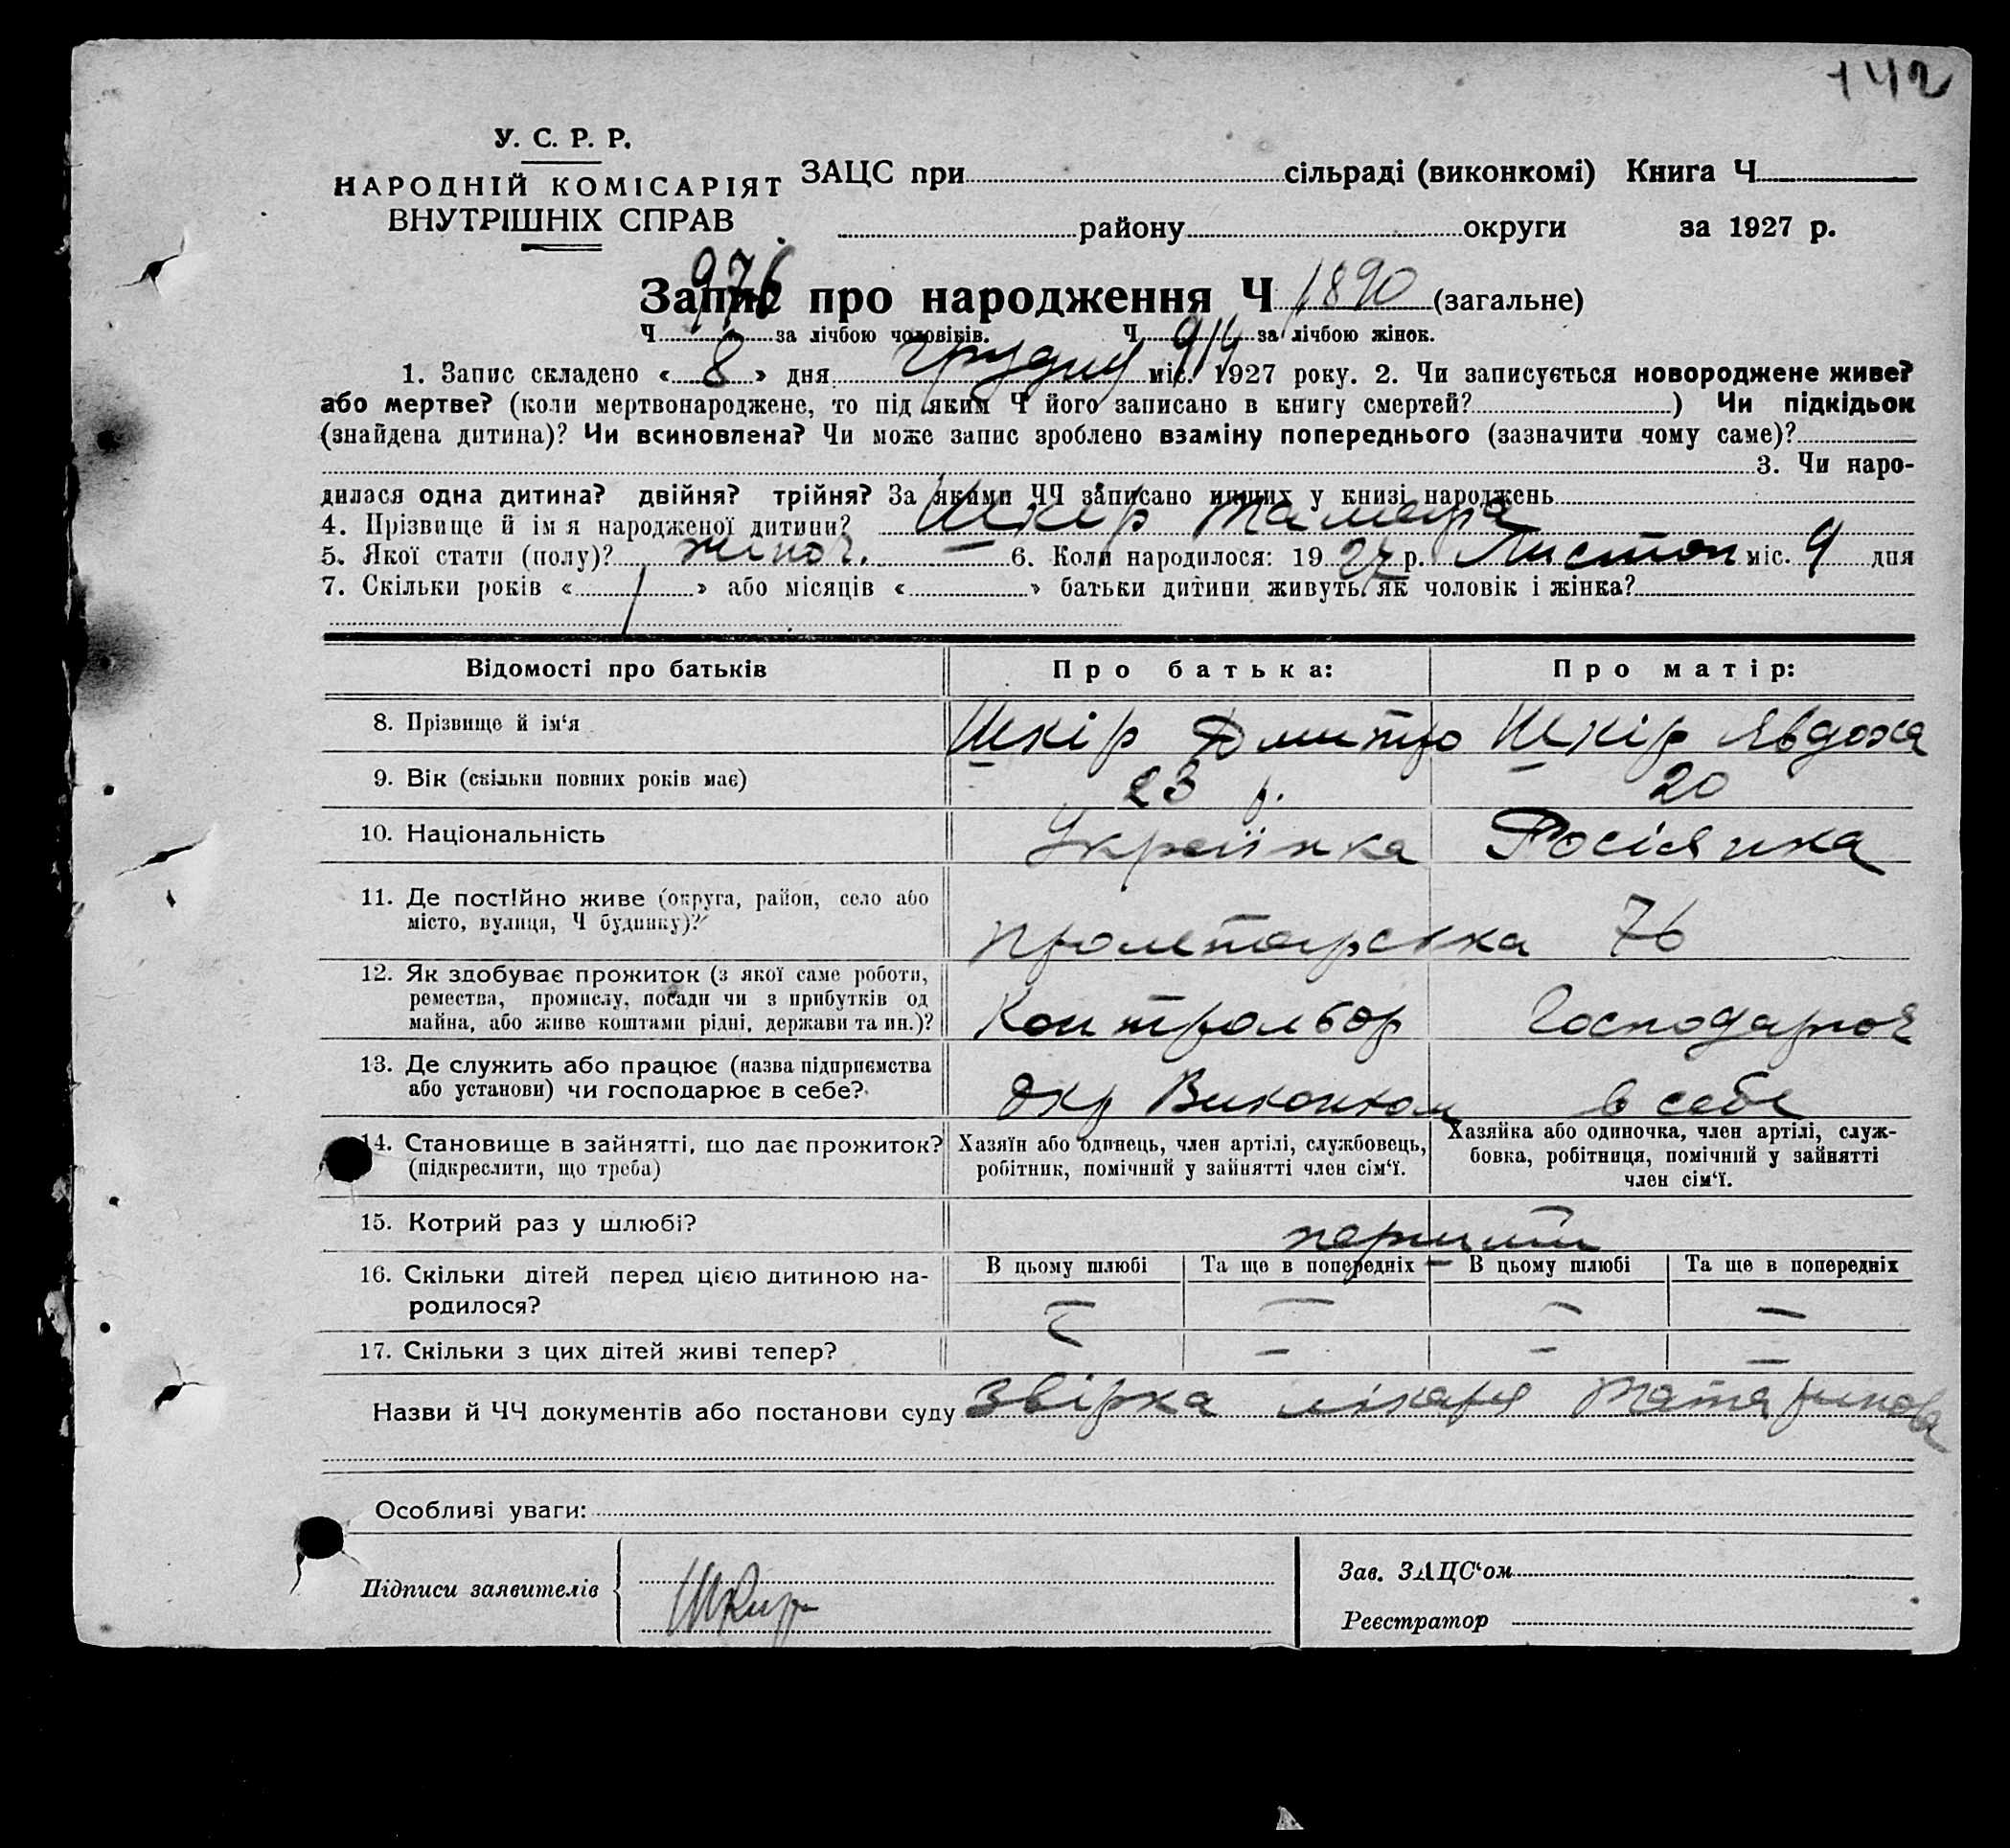 142
У. С. Р. Р.
НАРОДНІЙ КОМІСАРІЯТ
ВНУТРІШНІХ СПРАВ
ЗАЦС при сільраді (виконкомі) Книга Ч
району округи за 1927 р.
976
Запис про народження Ч 1890 (загальне)
Ч за лічбою чоловіків. Ч 914 за лічбою жінок.
1. Запис складено « 8 » дня грудня міс. 1927 року. 2. Чи записується новороджене живе?
або мертве? (коли мертвонароджене, то під яким Ч його записано в книгу смертей? ) Чи підкідьок
(знайдена дитина)? Чи всиновлена? Чи може запис зроблено взаміну попереднього (зазначити чому саме)?
3. Чи наро-
дилася одна дитина? двійня? трійня? За якими ЧЧ записано инших у книзі народжень
4. Прізвище й ім я народженої дитини? Шкір Тамара
5. Якої стати (полу)? жіноч. 6. Коли народилося: 19 27 р. Листоп міс. 9 дня
7. Скільки років « 1 » або місяців « » батьки дитини живуть як чоловік і жінка?
Відомості про батьків Про батька: Про матір:
8. Прізвище й ім‘я Шкір Дмитро Шкір Явдоха
9. Вік (скільки повних років має) 23 р. 20
10. Національність Українка Росіянка
11. Де постійно живе (округа, район, село або
місто, вулиця, Ч будинку)? Пролетарська 76
12. Як здобуває прожиток (з якої саме роботи,
ремества, промислу, посади чи з прибутків од
майна, або живе коштами рідні, держави та ин.)? Контрольор Господарює
13. Де служить або працює (назва підприємства
або установи) чи господарює в себе? Окр Виконком в себе
14. Становище в зайнятті, що дає прожиток?
(підкреслити, що треба)
Хазяїн або одинець, член артілі, службовець,
робітник, помічний у зайнятті член сім‘ї.
Хазяйка або одиночка, член артілі, служ-
бовка, робітниця, помічний у зайнятті
член сім‘ї.
15. Котрий раз у шлюбі? перший
16. Скільки дітей перед цією дитиною на-
родилося?
В цьому шлюбі Та ще в попередніх В цьому шлюбі Та ще в попередніх
— — — —
17. Скільки з цих дітей живі тепер? — — — —
Назви й ЧЧ документів або постанови суду Звірка лікаря Татаринова
Особливі уваги:
Підписи заявителів Шкир
Зав. ЗАЦС‘ом
Реєстратор